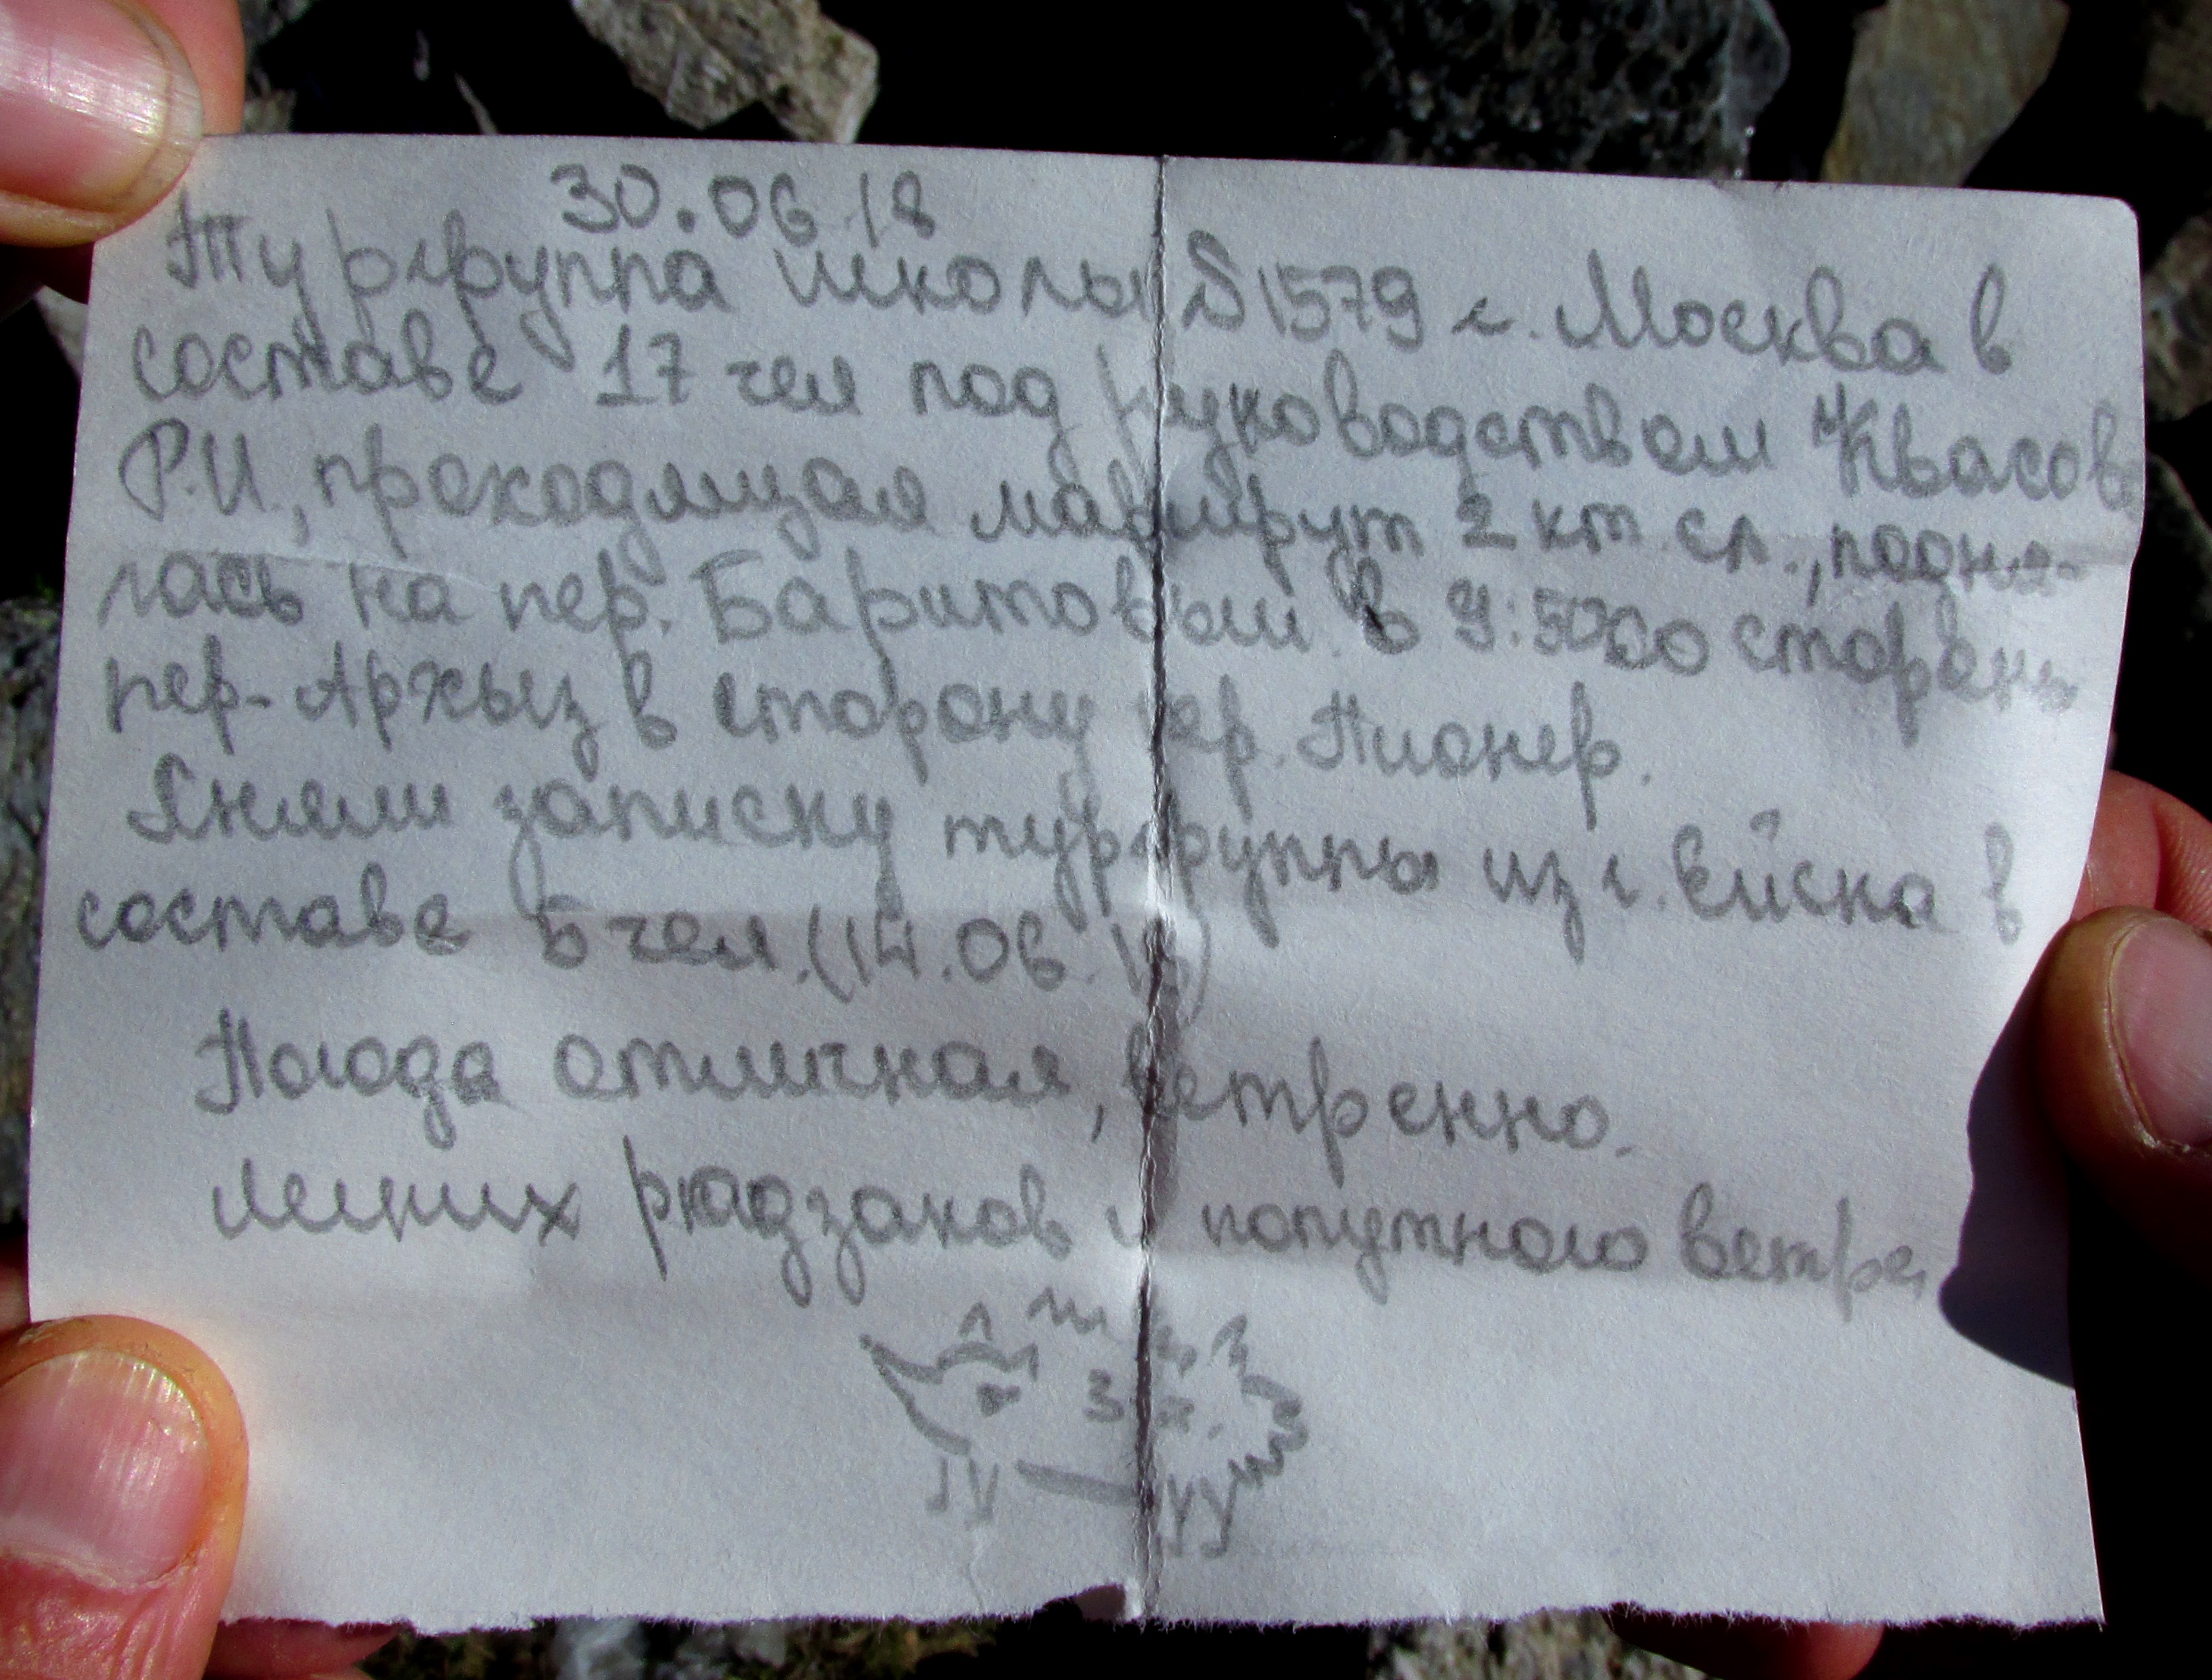 30.06.18
Тургруппа школы S 1579 г. Москва в
составе 17 чел под руководством Квасов
Р.И., проходящая маршрут 2 кт. сл., подня-
лась на пер. Баритовый в 9:50 со стороны
пер. Архыз в сторону пер. Пионер.
Сняли записку тургруппы из г. Ейска в
составе 5 чел. (14.06.18)
Погода отличная, ветренно.
Легких рюдзаков и попутного ветра